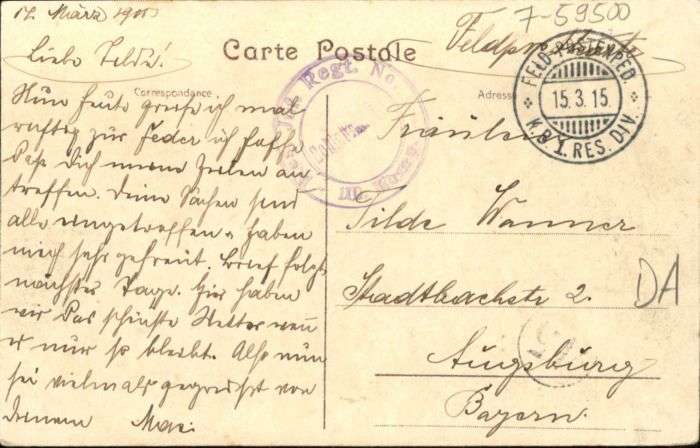 7-59500
14. März 1915
Carte Postale
Feldpostkarte
Liebe Tilde!
Correspondance
Adresse
FELD-POSTEXPED.
15.3.15.
K.B.1.RES.DIV.
Regt. No
III
Nun heute greife ich mal
richtig zur Feder ich hoffe
daß Dich meine Zeilen an-
treffen. Deine Sachen sind
alle eingetroffen u. haben
mich sehr gefreut. Brief folgt
nächster Tage. Hier haben
wir das schönste Wetter wenn
es nur so bleibt. Also nun
sei vielmals gegrüßt von
deinem Max.
Fräulein
Tilde Wanner
Stadtbachstr 2.
DA
Augsburg
Bayern.